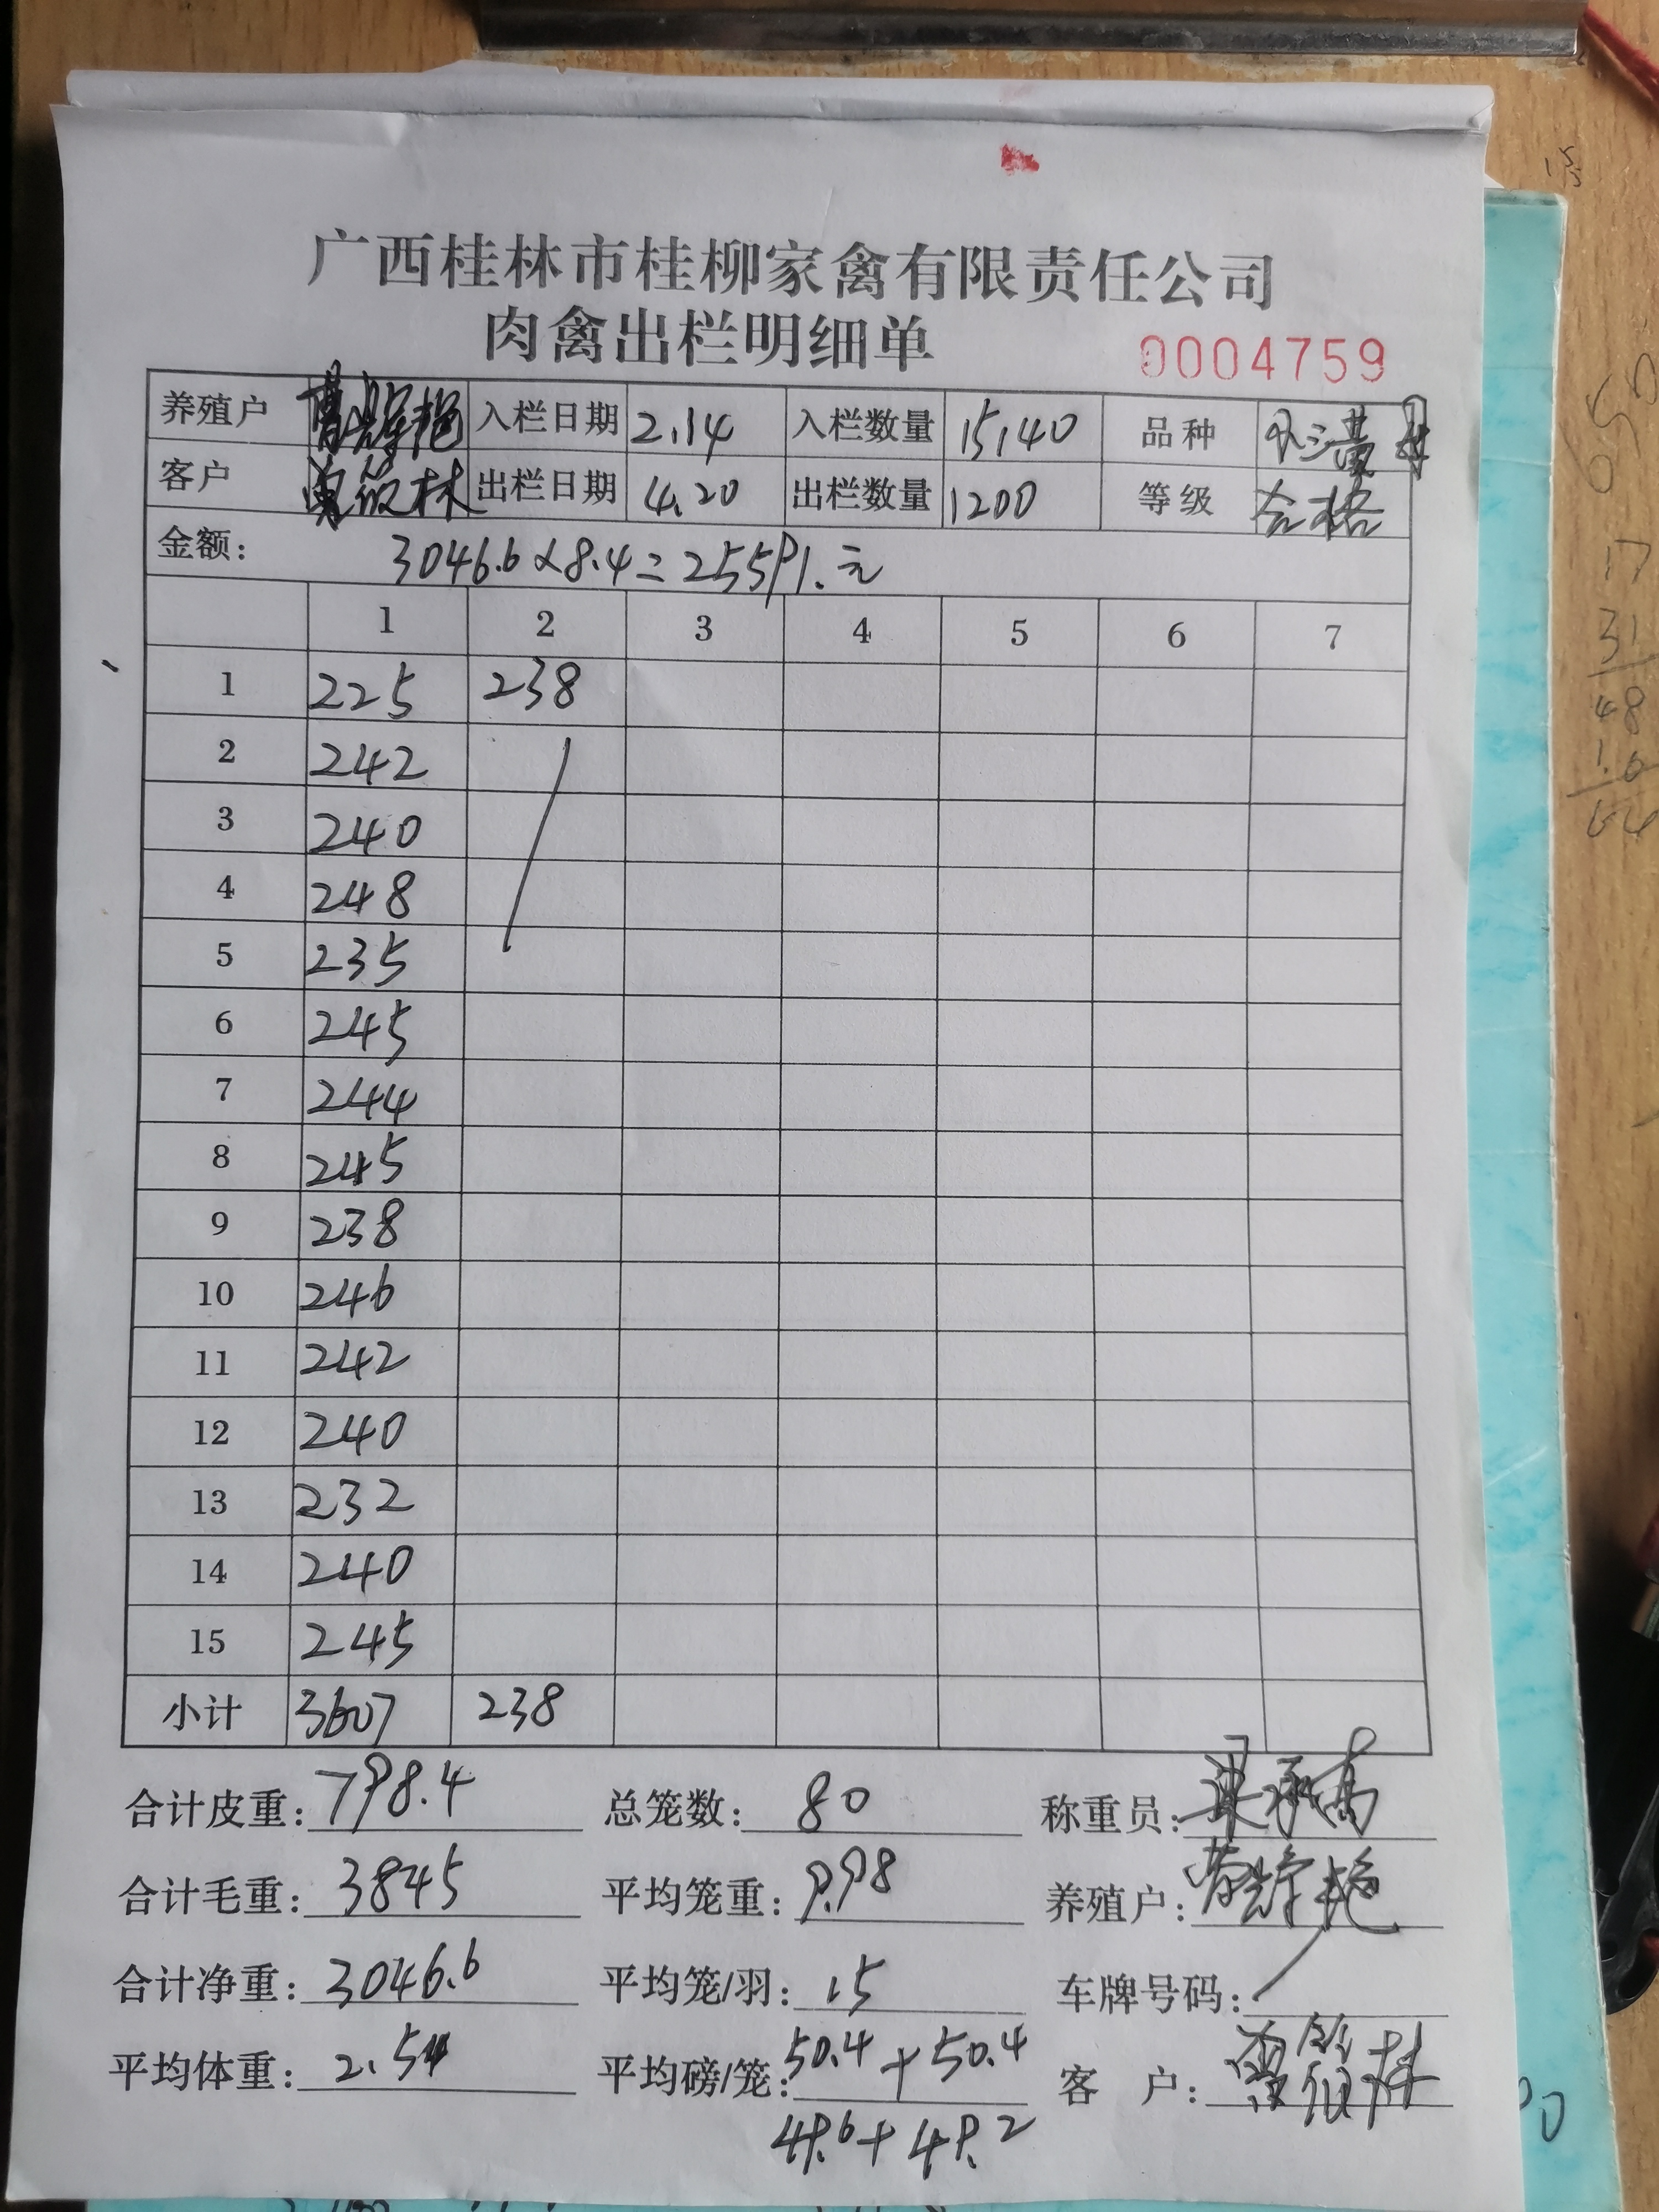 广西桂林市桂柳家禽有限责任公司
肉禽出栏明细单 0004759
养殖户 入栏日期 2.14 入栏数量 15,140 品种
客户 林 出栏日期 4.20 出栏数量 1200 等级 合格
金额: 3046.6×8.4=25591.元
1 2 3 4 5 6 7
1 225 238
2 242
3 240
4 248
5 235
6 245
7 244
8 245
9 238
10 246
11 242
12 240
13 232
14 240
15 245
小计 3607 238
合计皮重: 798.4 总笼数: 80 称重员:
合计毛重: 3845 平均笼重: 9.98 养殖户:
合计净重: 3046.6 平均笼/羽: 15 车牌号码:
平均体重: 2.54 平均磅/笼: 50.4+50.4 客 户: 林
49.6+49.2
17
31
48
1.6
64